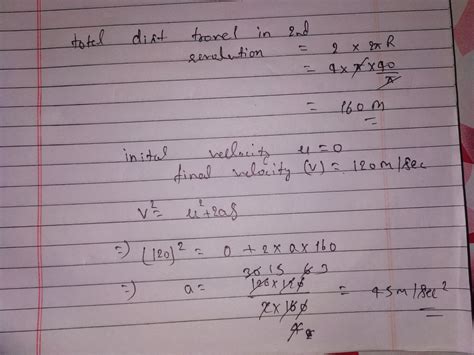 totel dist travel in 2nd
revolution = 2 x 2πR
= 4 x π x 40/π
= 160 m
inital vellocity u = 0
final velocity (v) = 120 m/sec
v² = u² + 2as
=) (120)² = 0 + 2 x a x 160
30 15 6 3
=) a = 120 x 120 / 2 x 160 = 45 m/sec²